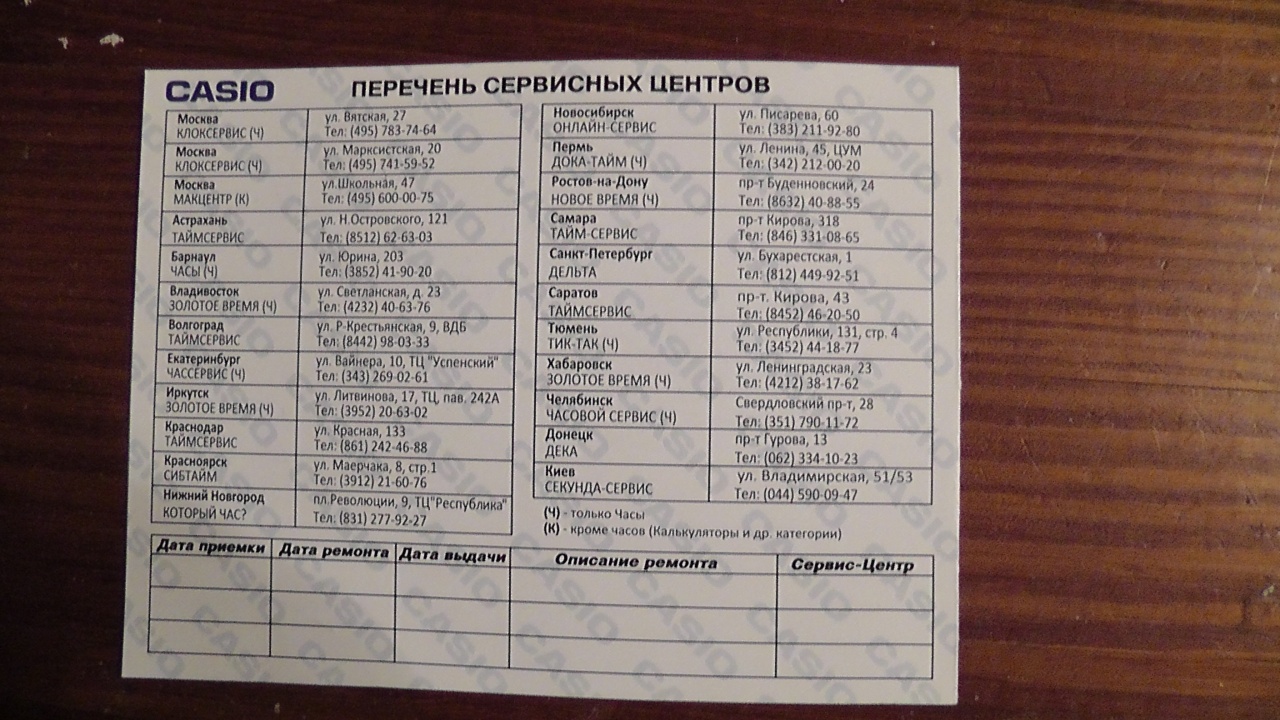 CASIO ПЕРЕЧЕНЬ СЕРВИСНЫХ ЦЕНТРОВ
Москва ул. Вятская, 27
КЛОКСЕРВИС (Ч) Тел: (495) 783-74-64
Москва ул. Марксистская, 20
КЛОКСЕРВИС (Ч) Тел: (495) 741-59-52
Москва ул.Школьная, 47
МАКЦЕНТР (К) Тел: (495) 600-00-75
Астрахань ул. Н.Островского, 121
ТАЙМСЕРВИС Тел: (8512) 62-63-03
Барнаул ул. Юрина, 203
ЧАСЫ (Ч) Тел: (3852) 41-90-20
Владивосток ул. Светланская, д. 23
ЗОЛОТОЕ ВРЕМЯ (Ч) Тел: (4232) 40-63-76
Волгоград ул. Р-Крестьянская, 9, ВДБ
ТАЙМСЕРВИС Тел: (8442) 98-03-33
Екатеринбург ул. Вайнера, 10, ТЦ "Успенский"
ЧАССЕРВИС (Ч) Тел: (343) 269-02-61
Иркутск ул. Литвинова, 17, ТЦ, пав. 242А
ЗОЛОТОЕ ВРЕМЯ (Ч) Тел: (3952) 20-63-02
Краснодар ул. Красная, 133
ТАЙМСЕРВИС Тел: (861) 242-46-88
Красноярск ул. Маерчака, 8, стр.1
СИБТАЙМ Тел: (3912) 21-60-76
Нижний Новгород пл.Революции, 9, ТЦ"Республика"
КОТОРЫЙ ЧАС? Тел: (831) 277-92-27
Новосибирск ул. Писарева, 60
ОНЛАЙН-СЕРВИС Тел: (383) 211-92-80
Пермь ул. Ленина, 45, ЦУМ
ДОКА-ТАЙМ (Ч) Тел: (342) 212-00-20
Ростов-на-Дону пр-т Буденновский, 24
НОВОЕ ВРЕМЯ (Ч) Тел: (8632) 40-88-55
Самара пр-т Кирова, 318
ТАЙМ-СЕРВИС Тел: (846) 331-08-65
Санкт-Петербург ул. Бухарестская, 1
ДЕЛЬТА Тел: (812) 449-92-51
Саратов пр-т. Кирова, 43
ТАЙМСЕРВИС Тел: (8452) 46-20-50
Тюмень ул. Республики, 131, стр. 4
ТИК-ТАК (Ч) Тел: (3452) 44-18-77
Хабаровск ул. Ленинградская, 23
ЗОЛОТОЕ ВРЕМЯ (Ч) Тел: (4212) 38-17-62
Челябинск Свердловский пр-т, 28
ЧАСОВОЙ СЕРВИС (Ч) Тел: (351) 790-11-72
Донецк пр-т Гурова, 13
ДЕКА Тел: (062) 334-10-23
Киев ул. Владимирская, 51/53
СЕКУНДА-СЕРВИС Тел: (044) 590-09-47
(Ч) - только Часы
(К) - кроме часов (Калькуляторы и др. категории)
Дата приемки Дата ремонта Дата выдачи Описание ремонта Сервис-Центр